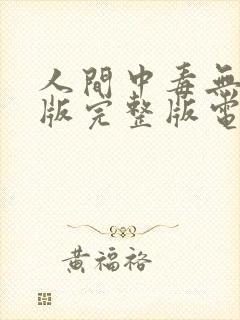 人間中毒無
版完整版電
黃福裕